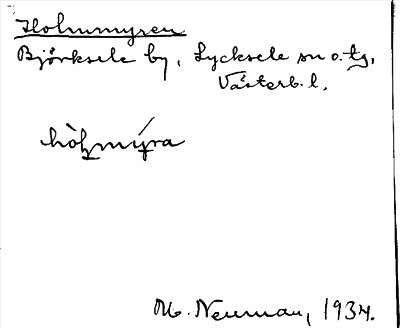 Holmmyren
Björksele by, Lycksele sn o. tg,
Västerb. l.
hòl̥mý̥ra
M. Neuman, 1934.